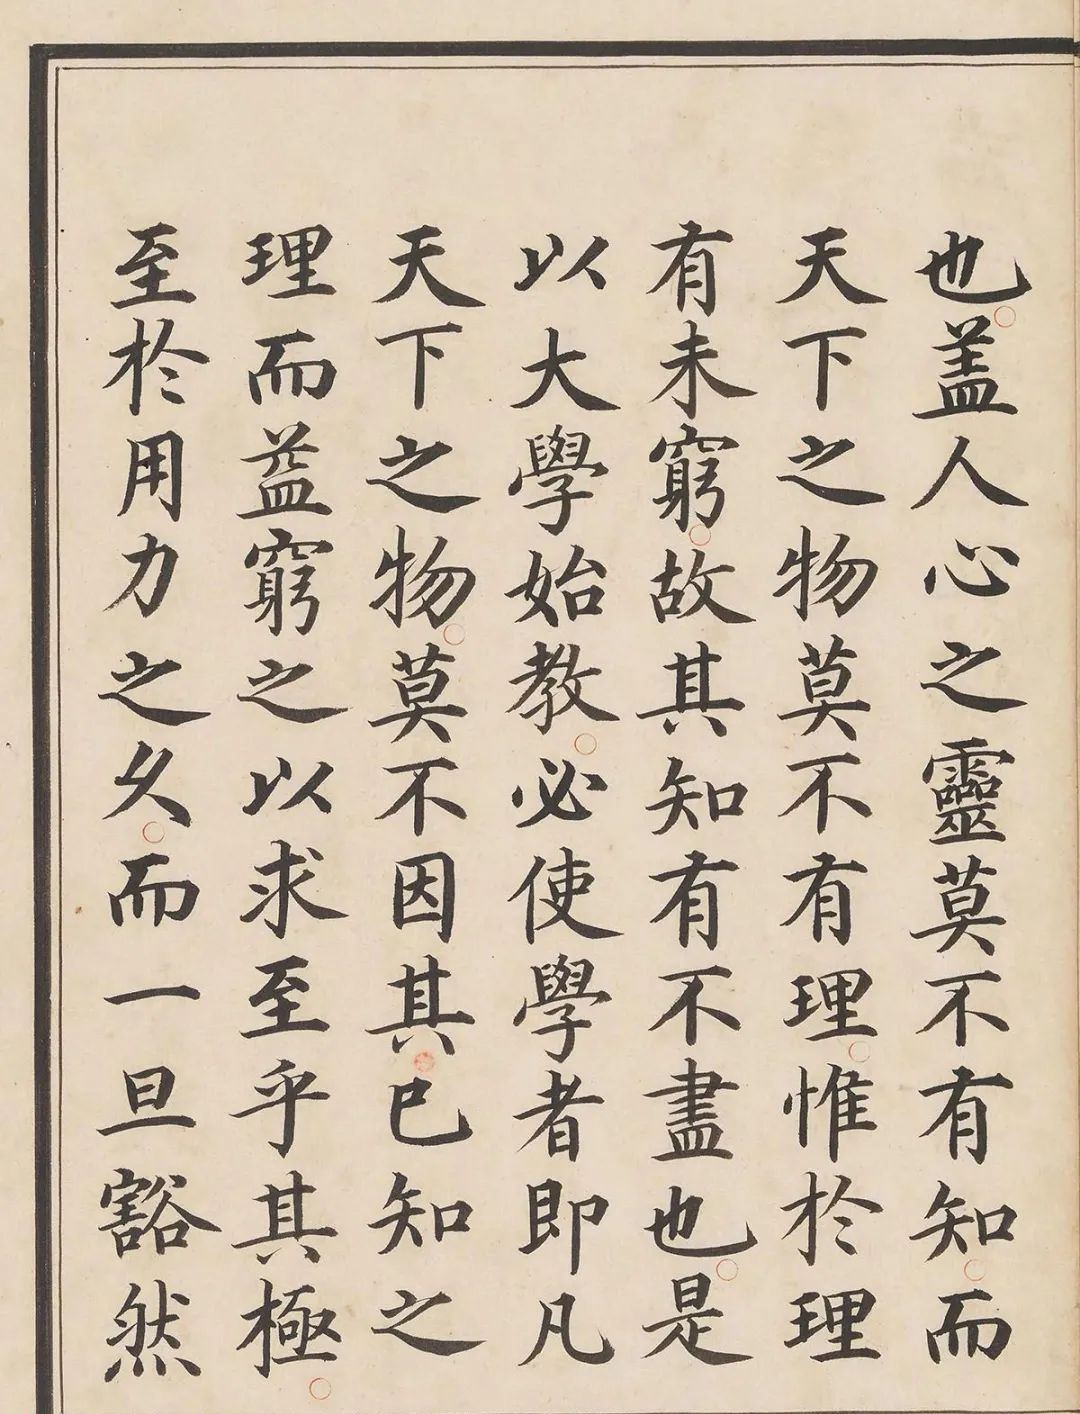 也蓋人心之靈莫不有知而
天下之物莫不有理惟於理
有未窮故其知有不盡也是
以大學始教必使學者即凡
天下之物莫不因其已知之
理而益窮之以求至乎其極
至於用力之久而一旦豁然